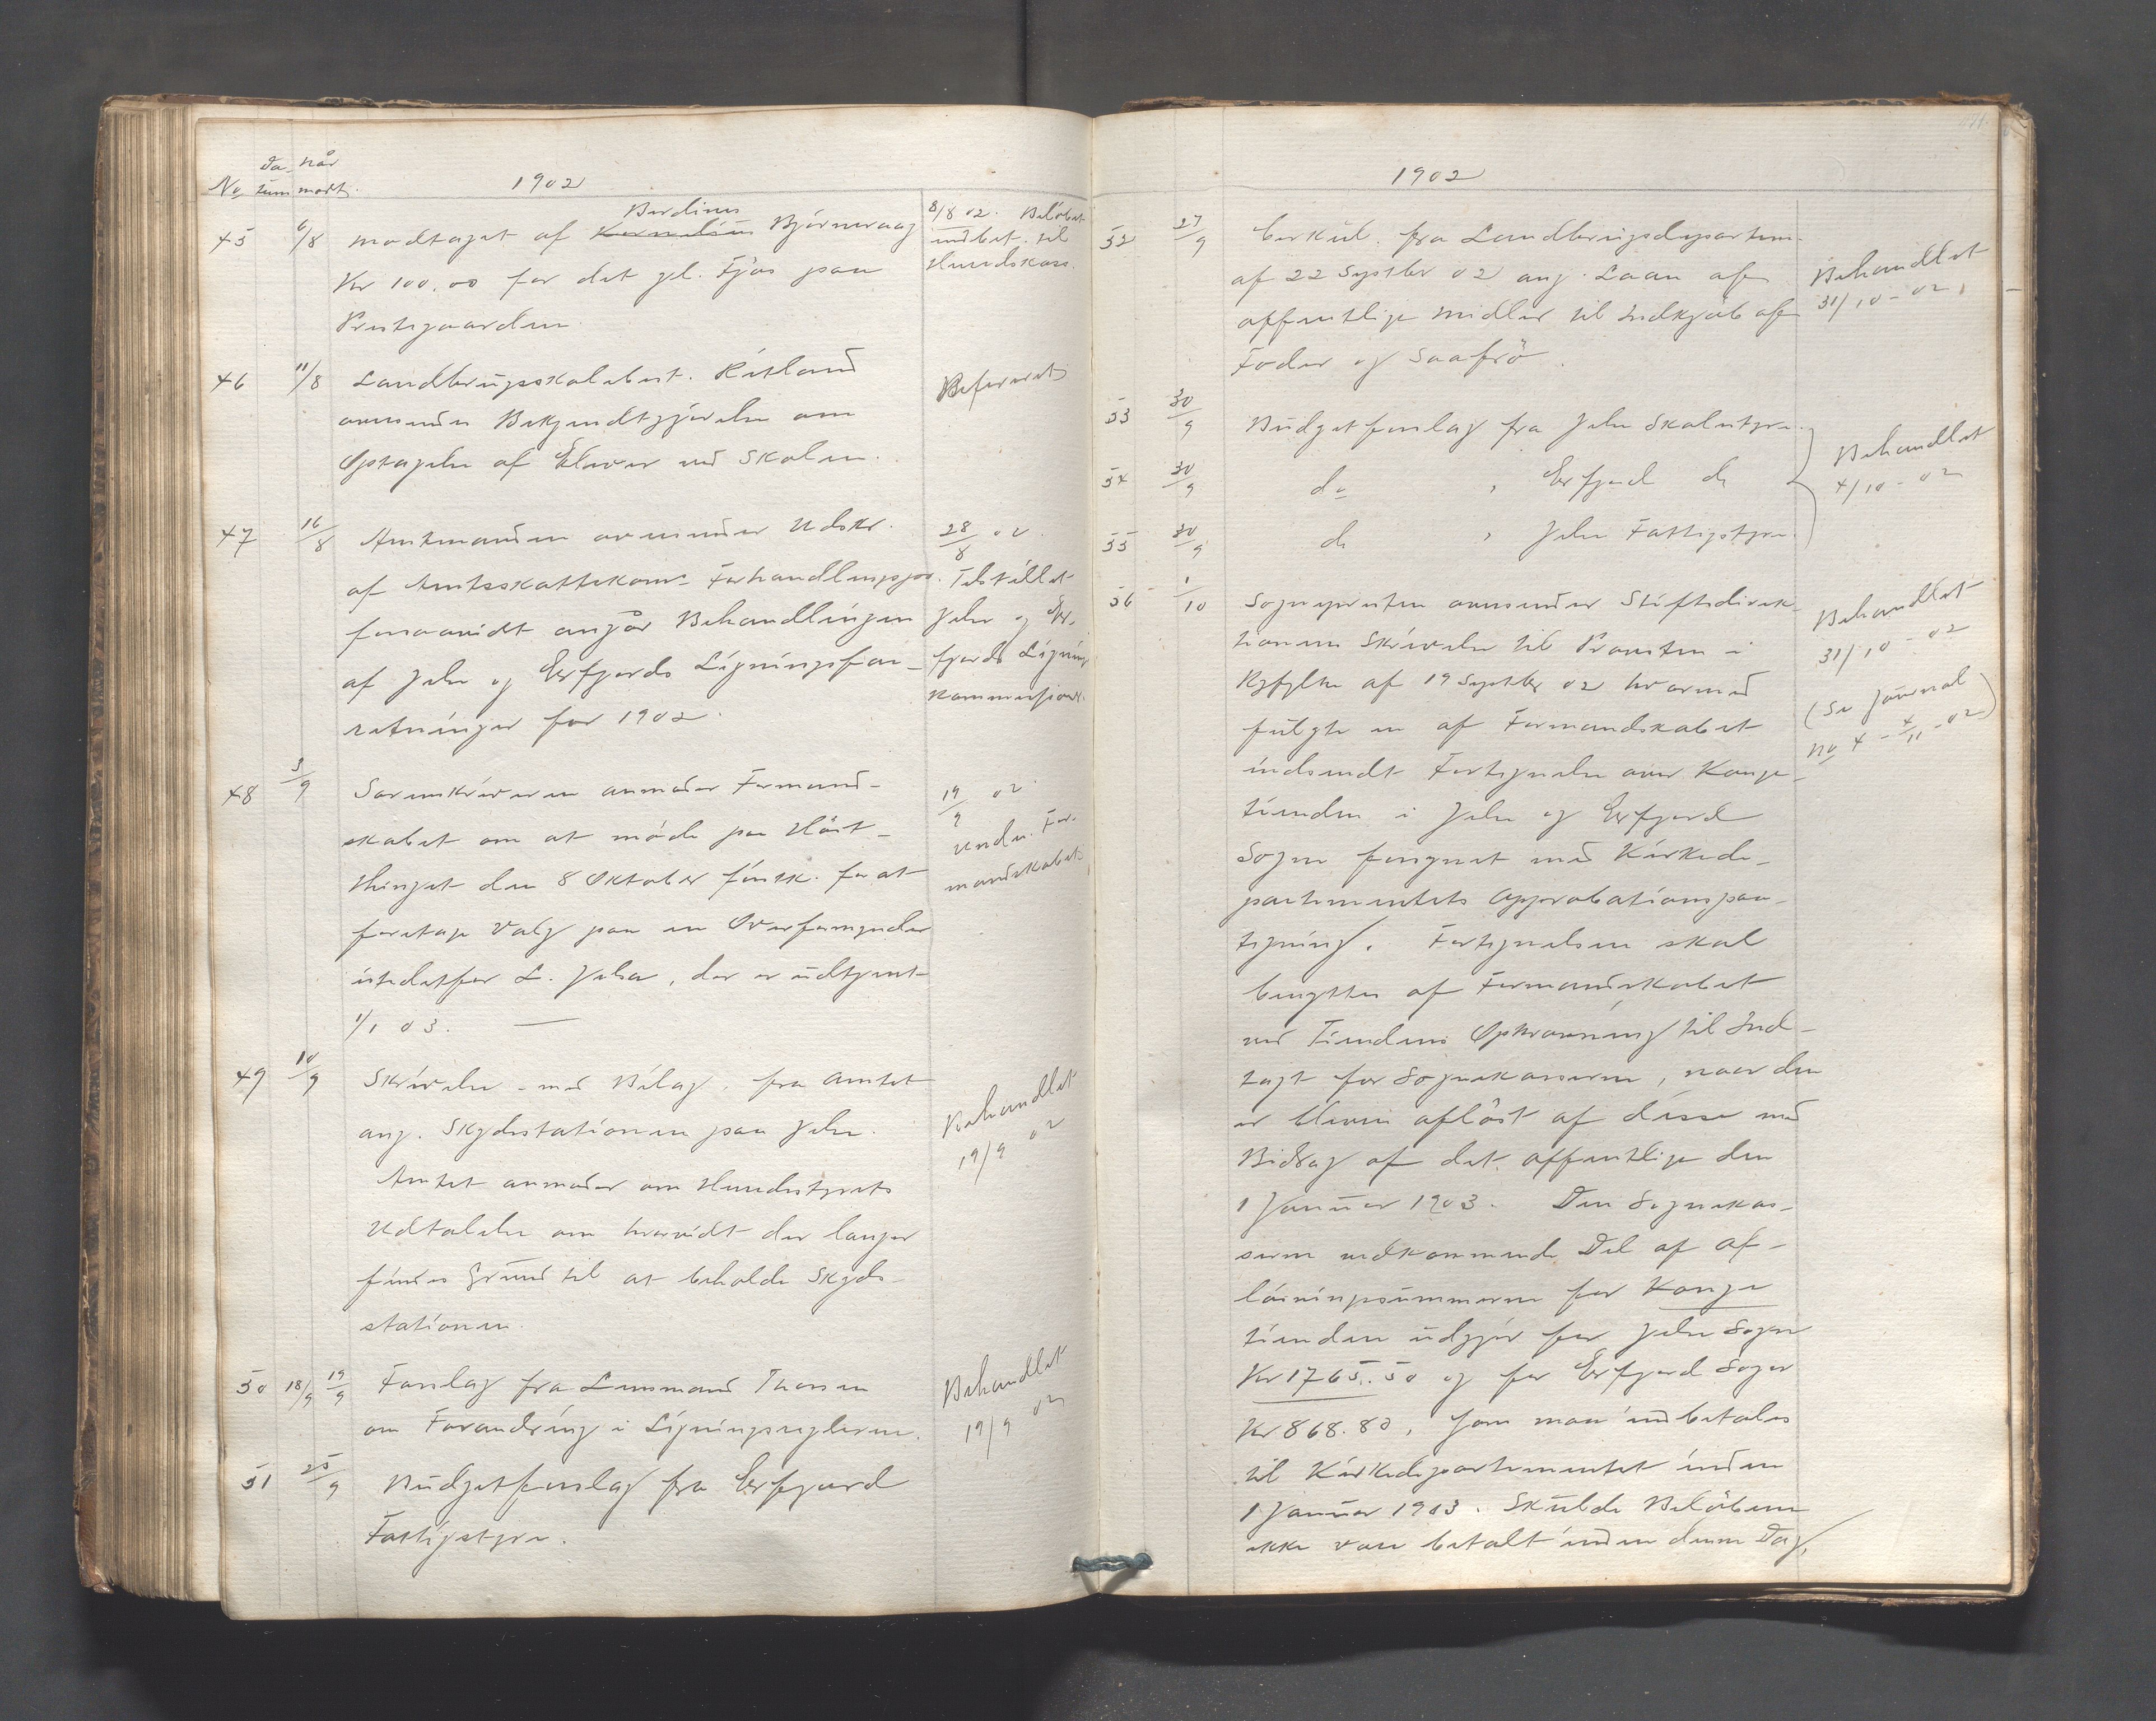 Da- Når
No tum modt. 1902
45 6/8 Modtaget af Kornelius Berdines Bjørneraag
Kr 100,00 for det gl. Fjøs paa
Prestegaarden.
8/8 02. Beløbet
indbet. til
Herredskass.
46 11/8 Landbrugsskolebest. Retland
overs͞ender Bekjendtgjørelse om
Optagelse af Elever ved Skolen.
Refereret
47 16/8 Amtmanden oversender Udskr.
af Amtsskattekom- Forhandlingspro.
forsaavidt angår Behandlingen
af Jelse og Erfjords Ligningsfor-
retninger for 1902.
28/8 02.
Tilstillet
Jelse og Er-
fjords Lignings
kommissioner.
48 3/9 Sorenskriveren anmoder Formand-
skabet om at møde paa Høst-
thinget den 8 Oktober førstk. for at
foretage Valg paa en Overformynder
istedetfor L. Jelsa, der er udtjent
1/1 03. —
19/9 02
Underr. For-
mandskabet
49 10/9 Skrivelse - med Bilag, fra Amtet
ang. Skydsstationen paa Jelse.
Amtet anmoder om Herredsstyrets
Udtalelse om hvorvidt der længer
findes Grund til at beholde Skyds-
stationen.
Behandlet
19/9 02
50 18/9 19/9 Forslag fra Lensmand Thorsen
om Forandring i Ligningsreglerne.
Behandlet
19/9 02
51 25/9 Budgetforslag fra Erfjord
Fattigstyre.
1902
52 27/9 Cirkul. fra Landbrugsdepartem.
af 22 Septbr 02 ang. Laan af
offentlige Midler til Indkjøb af
Foder og Saafrø.
Behandlet
31/10 - 02,
53 30/9 Budgetforslag fra Jelse Skolestyre
54 30/9 do " Erfjord do
55 30/9 do " Jelse Fattigstyre.
Behandlet
4/10 - 02
56 1/10 Sognepresten oversender Stiftsdirek-
tionens Skrivelse til Provsten i
Ryfylke af 19 Septbr 02 hvormed
fulgte en af Formandskabet
indsendt Fortegnelse over Konge-
tienden i Jelse og Erfjord
Sogne forsynet med Kirkede-
partementets Approbationspaa-
tegning. Fortegnelsen skal
benyttes af Formandskabet
ved Tiendens Opkrævning til Ind-
tægt for Sognekasserne, naar den
er bleven afløst af disse med
Bidrag af det offentlige den
1 Januar 1903. Den Sognekas-
serne vedkommende Del af Af-
løsningssummerne for Konge
tienden udgjør for Jelse Sogn
Kr 1765.50 og for Erfjord Sogn
Kr 868.80, som maa indbetales
til Kirkedepartementet inden
1 Januar 1903. Skulde Beløbene
ikke være betalt inden denne Dag,
Behandlet
31/10 - 02
(Se Journal
No 4 - 4/11 - 02)